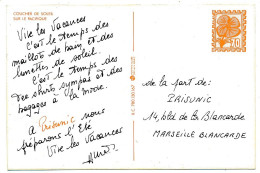 COUCHER DE SOLEIL
SUR LE
Vive les Vacances
c'est le temps des
maillots de bain, et des
lunettes de soleil.
c'est le temps des
shirts sympas et des
bagages à la mode.
à Prisunic nous
préparons l'Eté
Vive les Vacances
de la part de:
PRISUNIC
14, bld de la Blancarde
MARSEILLE BLANCARDE